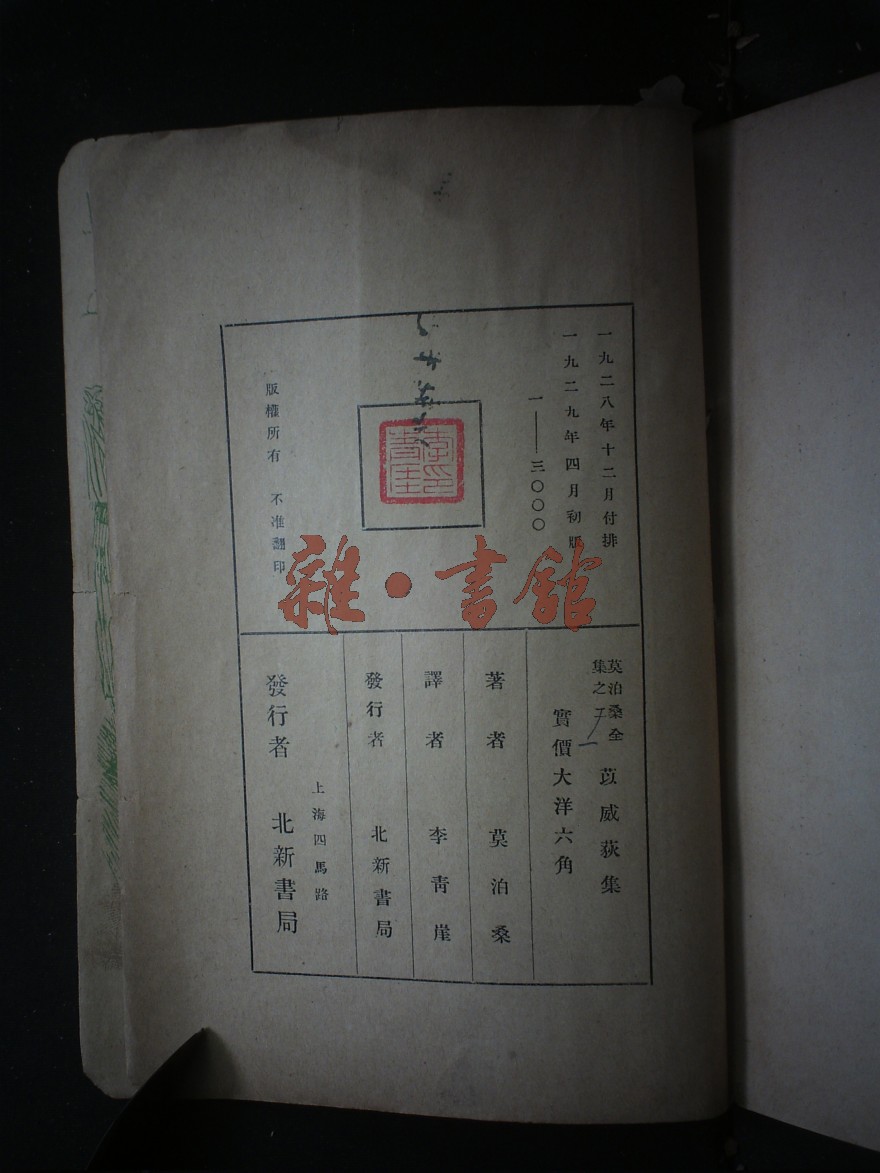 一九二八年十二月付排
一九二九年四月初版
一——三〇〇〇
李印青崖
版權所有 不准翻印
雜·書館
莫泊桑全
集之
苡威荻集
實價大洋六角
著者 莫泊桑
譯者 李青崖
發行者 北新書局
上海四馬路
發行者 北新書局